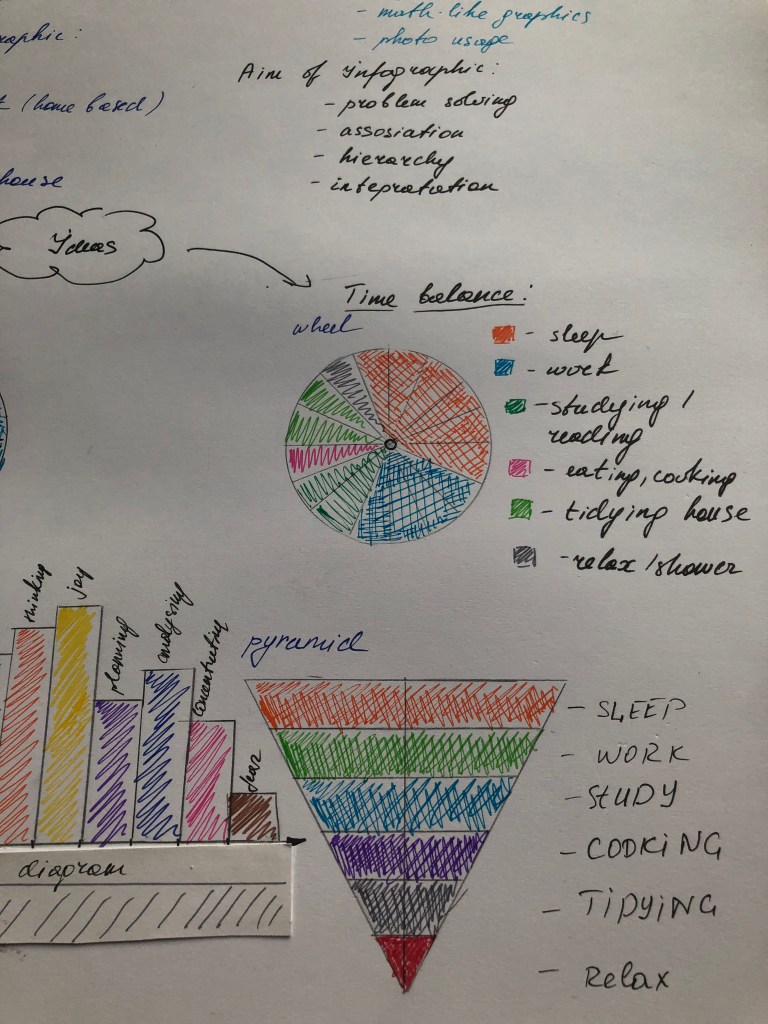 - math-like graphics
- photo usage
graphic:
Aim of infographic:
- problem solving
(home based)
- assosiation
- hierarchy
- intepratation
house
Ideas
Time balance:
wheel
- sleep
- work
- studying /
reading
- eating, cooking
- tidying house
- relax / shower
thinking
joy
planning
analysing
concentrating
fear
diagram
pyramid
- SLEEP
- WORK
- STUDY
- COOKING
- TIDYING
- Relax